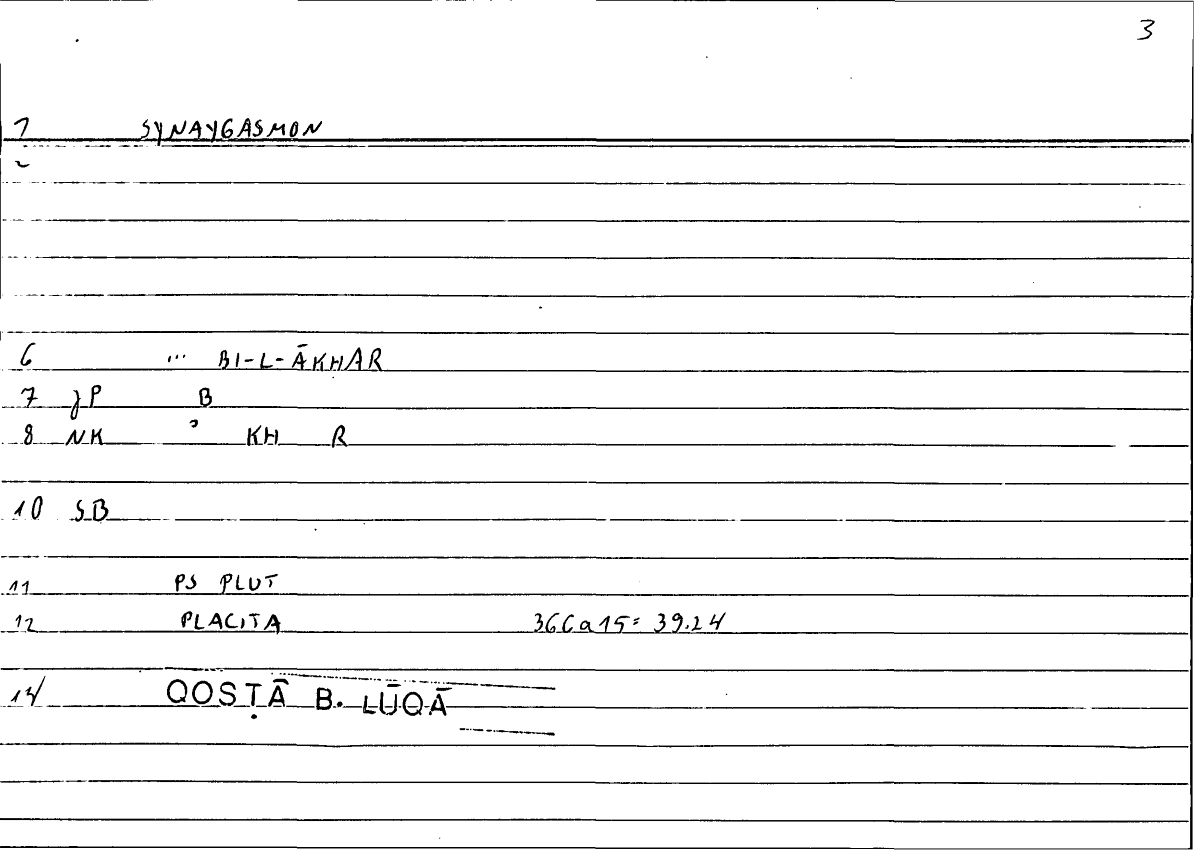 3
1 SYNAYGASMON
2
6 ... BI-L-ĀKHAR
7 JP B
8 NK ɔ KH R
10 SB
11 PS PLUT
12 PLACITA 366a15= 39.24
14 QOSṬĀ B. LŪQĀ